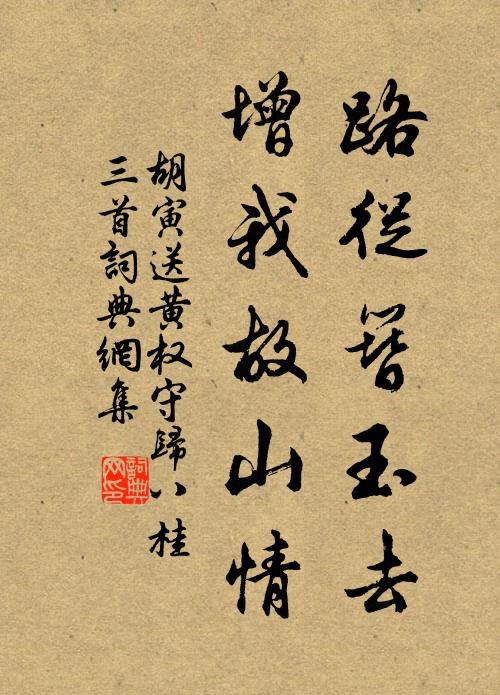 路從簪玉去
增我故山情
胡寅送黄权守歸八桂
三首詞典網集
詞典
网印